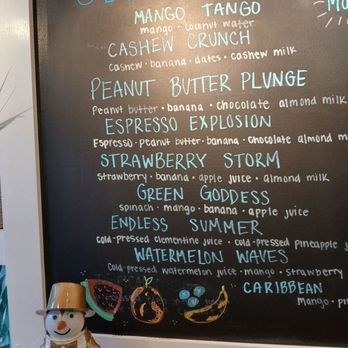 MANGO TANGO
mango · coconut water
CASHEW CRUNCH
cashew · banana · dates · cashew milk
PEANUT BUTTER PLUNGE
Peanut butter · banana · chocolate almond milk
ESPRESSO EXPLOSION
Espresso · peanut butter · banana · chocolate almond m
STRAWBERRY STORM
strawberry · banana · apple juice · almond milk
GREEN GODDESS
spinach · mango · banana · apple juice
ENDLESS SUMMER
cold-pressed clementine juice · cold-pressed pineapple j
WATERMELON WAVES
cold-pressed watermelon juice · mango · strawberry
CARIBBEAN
mango · pi